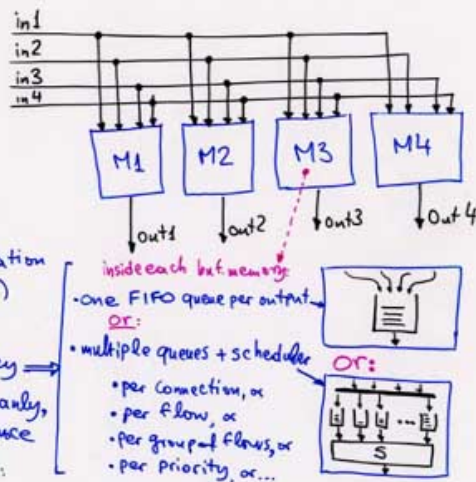 in1
in2
in3
in4
M1 M2 M3 M4
out1 out2 out3 out4
inside each buf. memory:
• one FIFO queue per output
or:
• multiple queues + scheduler
or:
• per connection, or
• per flow, or
• per group of flows, or
• per priority, or...
S